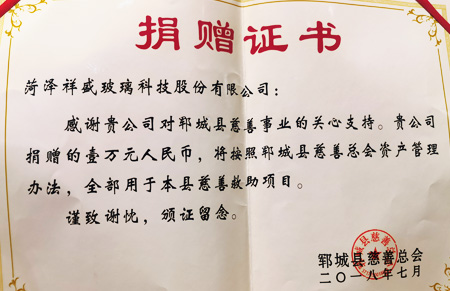 捐赠证书
菏泽祥盛玻璃科技股份有限公司：
感谢贵公司对郓城县慈善事业的关心支持。贵公司
捐赠的壹万元人民币，将按照郓城县慈善总会资产管理
办法，全部用于本县慈善救助项目。
谨致谢忱，颁证留念。
郓城县慈善总会
二〇一八年七月